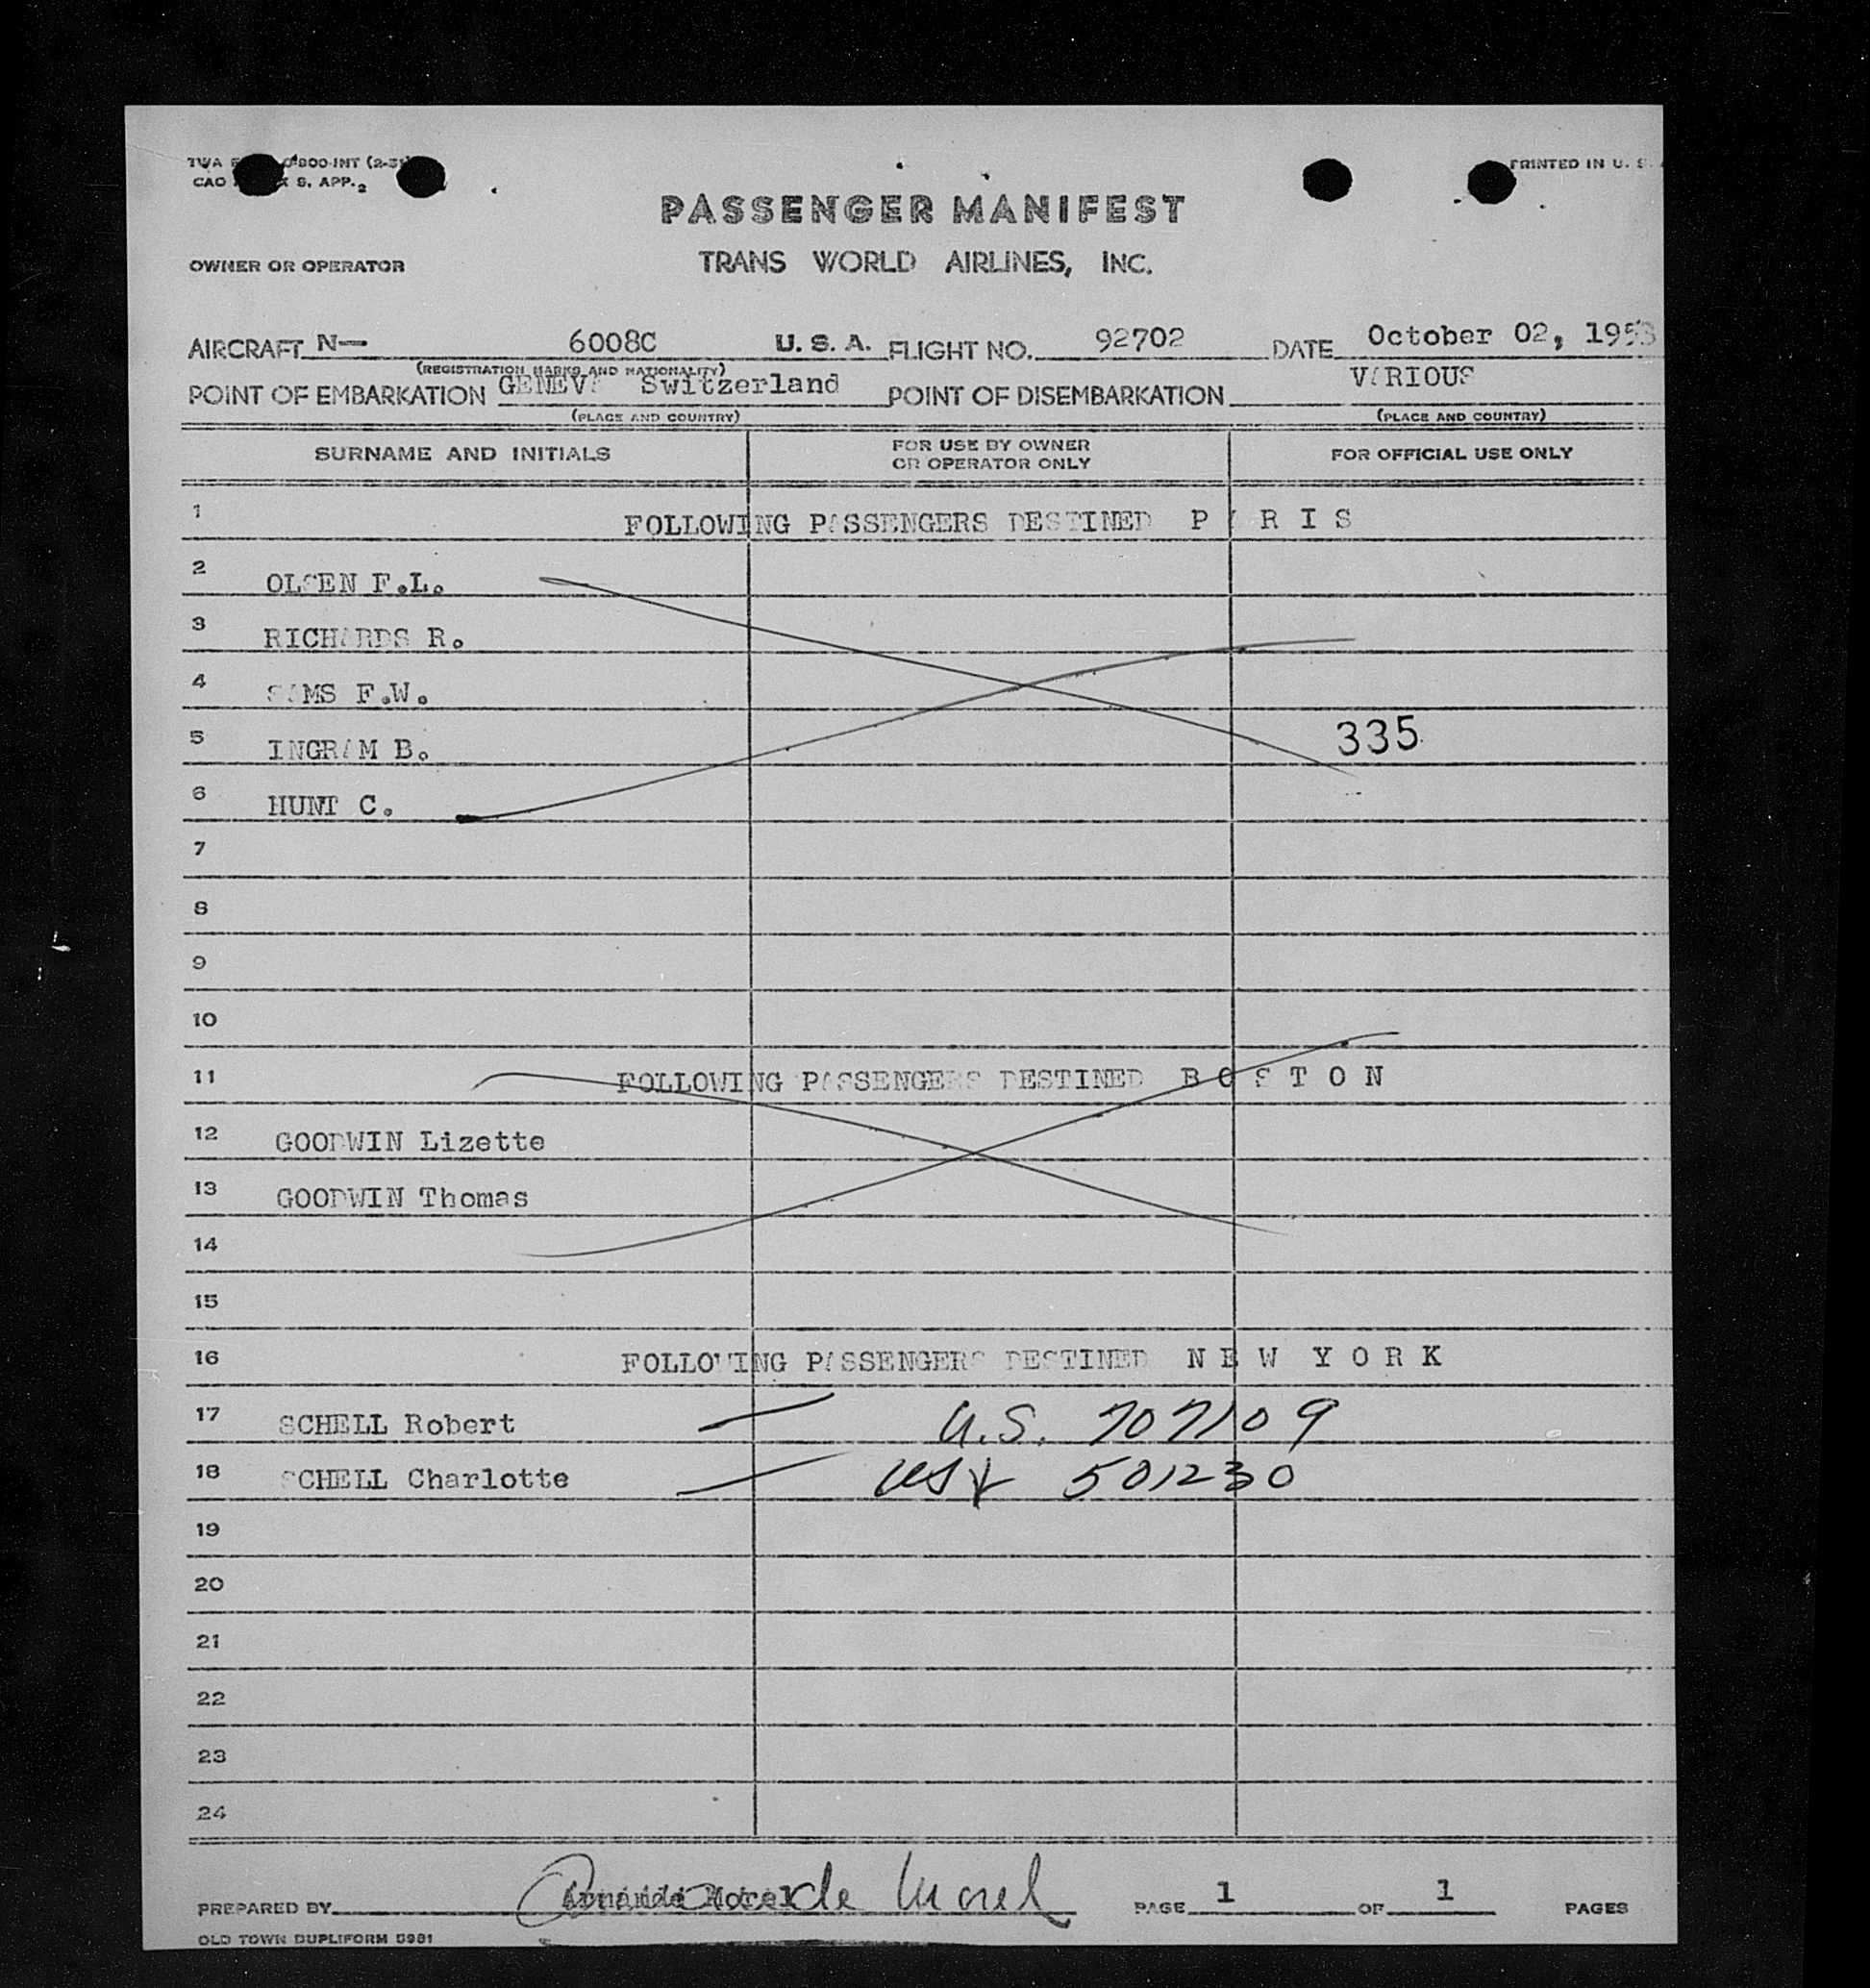 TWA 800-INT (2-51)
CAO S. APP. 2
PRINTED IN U. S.
PASSENGER MANIFEST
OWNER OR OPERATOR TRANS WORLD AIRLINES, INC.
AIRCRAFT N— 6008C U. S. A. FLIGHT NO. 92702 DATE October 02, 1953
(REGISTRATION MARKS AND NATIONALITY)
POINT OF EMBARKATION GENEVA Switzerland POINT OF DISEMBARKATION VARIOUS
(PLACE AND COUNTRY) (PLACE AND COUNTRY)
SURNAME AND INITIALS FOR USE BY OWNER OR OPERATOR ONLY FOR OFFICIAL USE ONLY
1 FOLLOWING PASSENGERS DESTINED P A R I S
2 OLSEN F.L.
3 RICHARDS R.
4 SAMS F.W.
5 INGRAM B. 335
6 HUNT C.
7
8
9
10
11 FOLLOWING PASSENGERS DESTINED B O S T O N
12 GOODWIN Lizette
13 GOODWIN Thomas
14
15
16 FOLLOWING PASSENGERS DESTINED N E W Y O R K
17 SCHELL Robert U.S. 707109
18 SCHELL Charlotte 501230
19
20
21
22
23
24
PREPARED BY Morel PAGE 1 OF 1 PAGES
OLD TOWN DUPLIFORM 5981